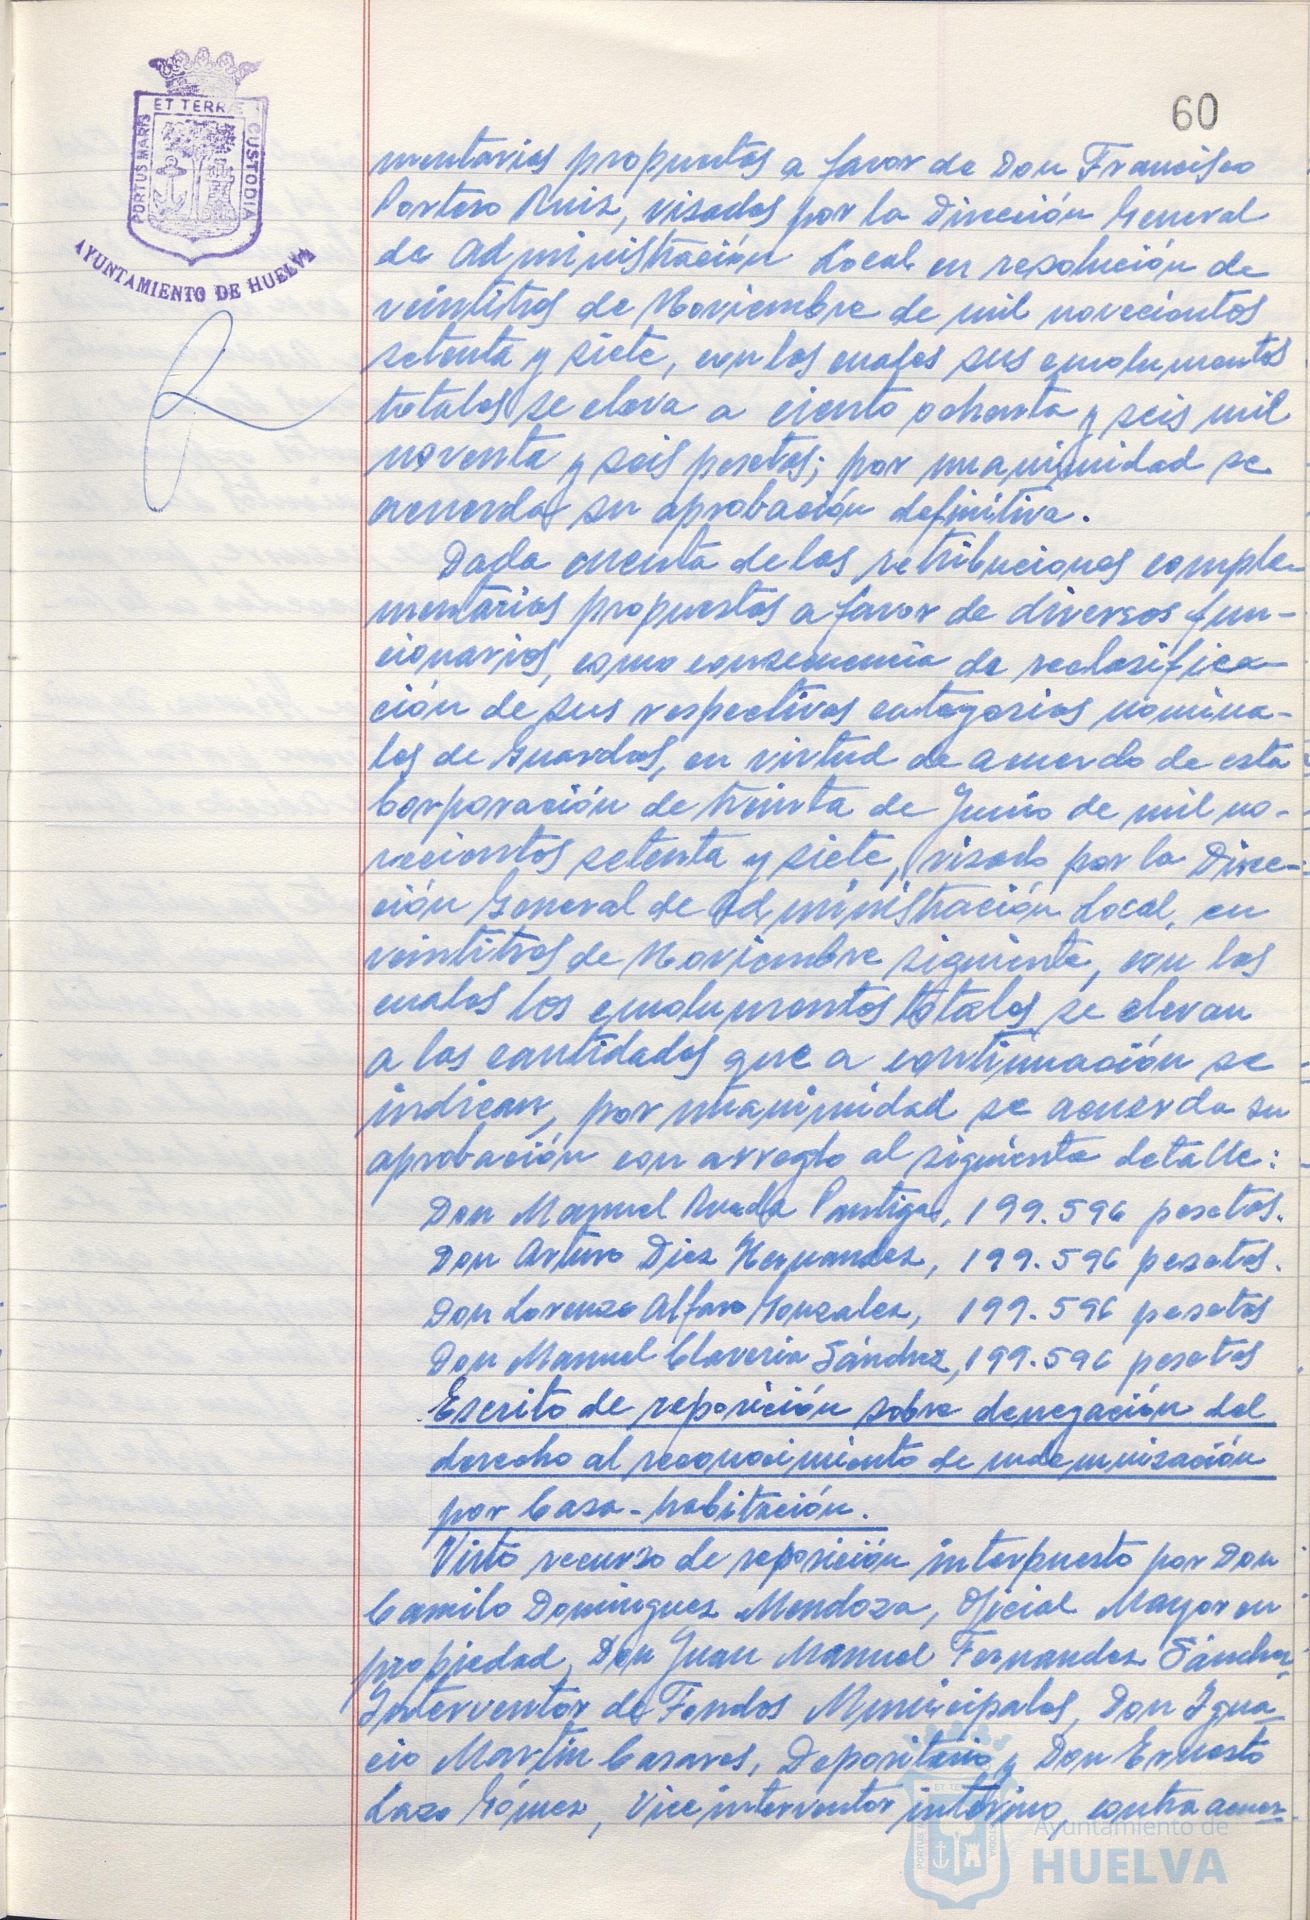 ET TERRÆ
PORTUS MARIS
CUSTODIA
AYUNTAMIENTO DE HUELVA
60
mentarias propuestas a favor de Don Francisco
Portero Ruiz, visadas por la Dirección General
de Administración Local en resolución de
veintitres de Noviembre de mil novecientos
setenta y siete, con las cuales sus emolumentos
totales se eleva a ciento ochenta y seis mil
noventa y seis pesetas; por unanimidad se
acuerda su aprobación definitiva.
Dada cuenta de las retribuciones comple-
mentarias propuestas a favor de diversos fun-
cionarios, como consecuencia de reclasifica-
ción de sus respectivas categorias nomina-
les de Guardas, en virtud de acuerdo de esta
Corporación de treinta de Junio de mil no-
vecientos setenta y siete, visado por la Direc-
ción General de Administración Local, en
veintitres de Noviembre siguiente, con las
cuales los emolumentos totales se elevan
a las cantidades que a continuación se
indican, por unanimidad se acuerda su
aprobación con arreglo al siguiente detalle:
Don Manuel Rueda 199.596 pesetas.
Don Arturo Diez Hernandez, 199.596 pesetas.
Don Lorenzo Alfaro Gonzalez, 199.596 pesetas
Don Manuel Claveria Sánchez, 199.596 pesetas
Escrito de reposición sobre denegación del
derecho al reconocimiento de indemnización
por Casa-habitación.
Visto recurso de reposición interpuesto por Don
Camilo Dominguez Mendoza, Oficial Mayor en
propiedad, Don Juan Manuel Fernandez Sánchez,
Interventor de Fondos Municipales, Don Igna-
cio Martin Casares, Depositario y Don Ernesto
Lazo Gómez, Viceinterventor interino, contra acuer-
Ayuntamiento de
HUELVA